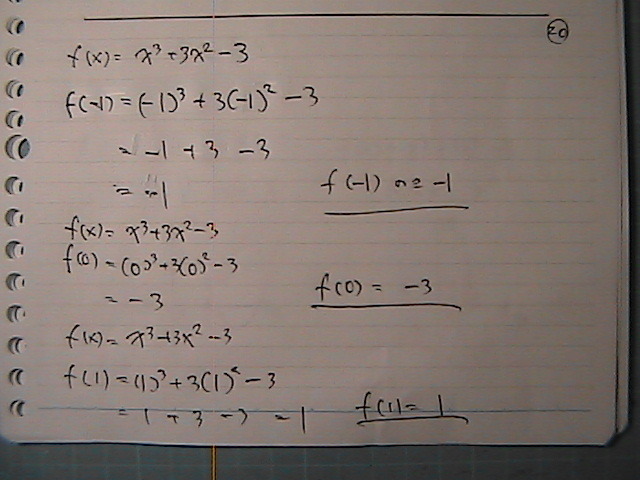 20
f(x) = x³ + 3x² - 3
f(-1) = (-1)³ + 3(-1)² - 3
= -1 + 3 - 3
= -1
f(-1) = -1
f(x) = x³ + 3x² - 3
f(0) = (0)³ + 3(0)² - 3
= -3
f(0) = -3
f(x) = x³ + 3x² - 3
f(1) = (1)³ + 3(1)² - 3
= 1 + 3 - 3 = 1
f(1) = 1